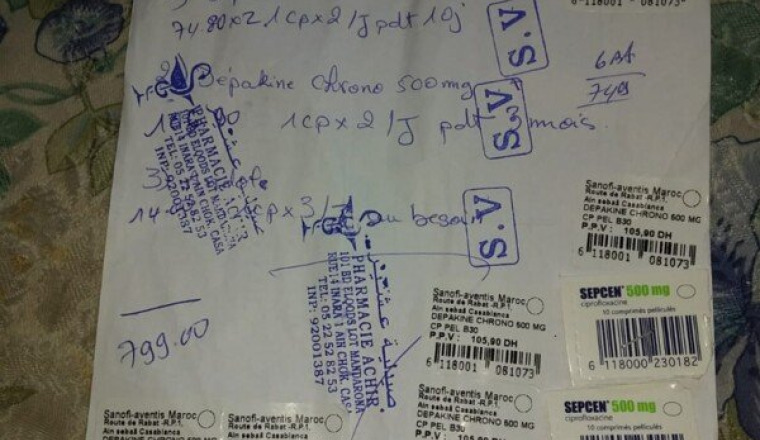 6 118001 081073
74.80x2 1cp x 2 /J pdt 10j
S.V
2) Dépakine Chrono 500mg
S.V
749
1cp x 2 /J pdt 3 mois.
3)
cp x 3 /J au besoin
S.V
799.00
PHARMACIE ACHIR
101 BD ELQODS LOT MANDARONA
RUE 14 INARA 1 AIN CHOK, CASA
TEL: 05 22 52 82 53
INP: 92001387
صيدلية
PHARMACIE ACHIR
101 BD ELQODS LOT MANDARONA
RUE 14 INARA 1 AIN CHOK, CASA
TEL: 05 22 52 82 53
INP: 92001387
Sanofi-aventis Maroc
Route de Rabat -R.P.1.
Ain sebaâ Casablanca
DEPAKINE CHRONO 500 MG
CP PEL B30
P.P.V : 105,90 DH
6 118001 081073
Sanofi-aventis Maroc
Route de Rabat -R.P.1.
Ain sebaâ Casablanca
DEPAKINE CHRONO 500 MG
CP PEL B30
P.P.V : 105,90 DH
6 118001 081073
SEPCEN 500 mg
ciprofloxacine
10 comprimés pelliculés
6 118000 230182
Sanofi-aventis Maroc
Route de Rabat -R.P.1.
Ain sebaâ Casablanca
DEPAKINE CHRONO 500 MG
CP PEL B30
P.P.V : 105,90 DH
SEPCEN 500 mg
ciprofloxacine
10 comprimés pelliculés
Sanofi-aventis Maroc
Route de Rabat -R.P.1.
Ain sebaâ Casablanca
DEPAKINE CHRONO 500 MG
Sanofi-aventis Maroc
Route de Rabat -R.P.1.
Ain sebaâ Casablanca
DEPAKINE CHRONO 500 MG